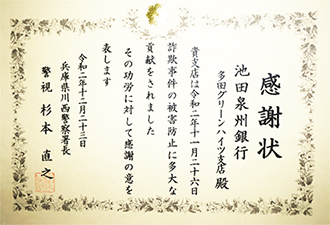 感謝状
池田泉州銀行
多田グリーンハイツ支店 殿
貴支店は令和二年十一月二十六日
詐欺事件の被害防止に多大な
貢献をされました
その功労に対して感謝の意を
表します
令和二年十二月二十三日
兵庫県川西警察署長
警視 杉本 直之